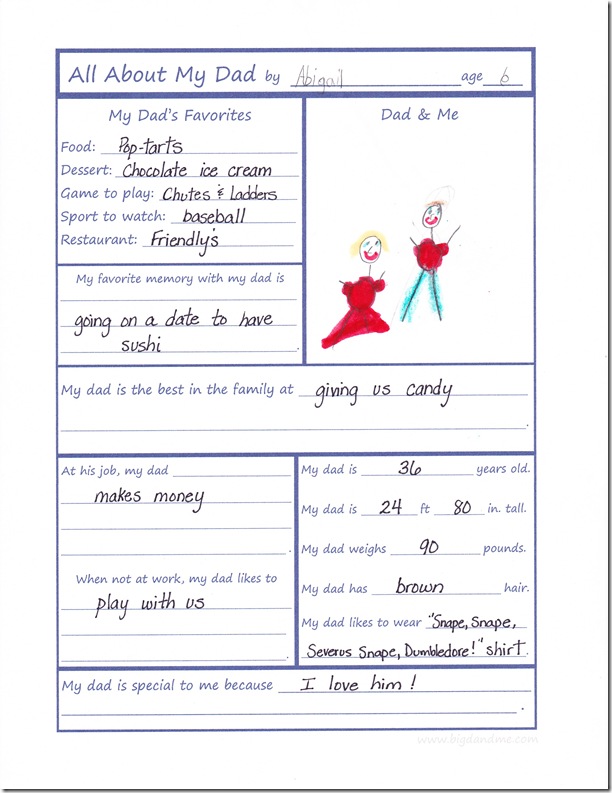 All About My Dad by Abigail age 6
My Dad's Favorites
Food: Pop-tarts
Dessert: Chocolate ice cream
Game to play: Chutes & Ladders
Sport to watch: baseball
Restaurant: Friendly's
Dad & Me
My favorite memory with my dad is
going on a date to have
sushi.
My dad is the best in the family at giving us candy
.
At his job, my dad
makes money
.
When not at work, my dad likes to
play with us
.
My dad is 36 years old.
My dad is 24 ft 80 in. tall.
My dad weighs 90 pounds.
My dad has brown hair.
My dad likes to wear "Snape, Snape,
Severus Snape, Dumbledore!" shirt.
My dad is special to me because I love him!
.
www.bigdandme.com